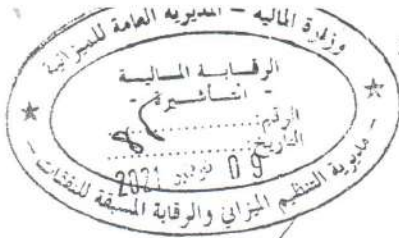 وزارة المالية – المديرية العامة للميزانية
الرقابة المالية
- التأشيرة -
الرقم:
التاريخ:
09 2021
- مديرية التنظيم الميزاني والرقابة المسبقة للنفقات -